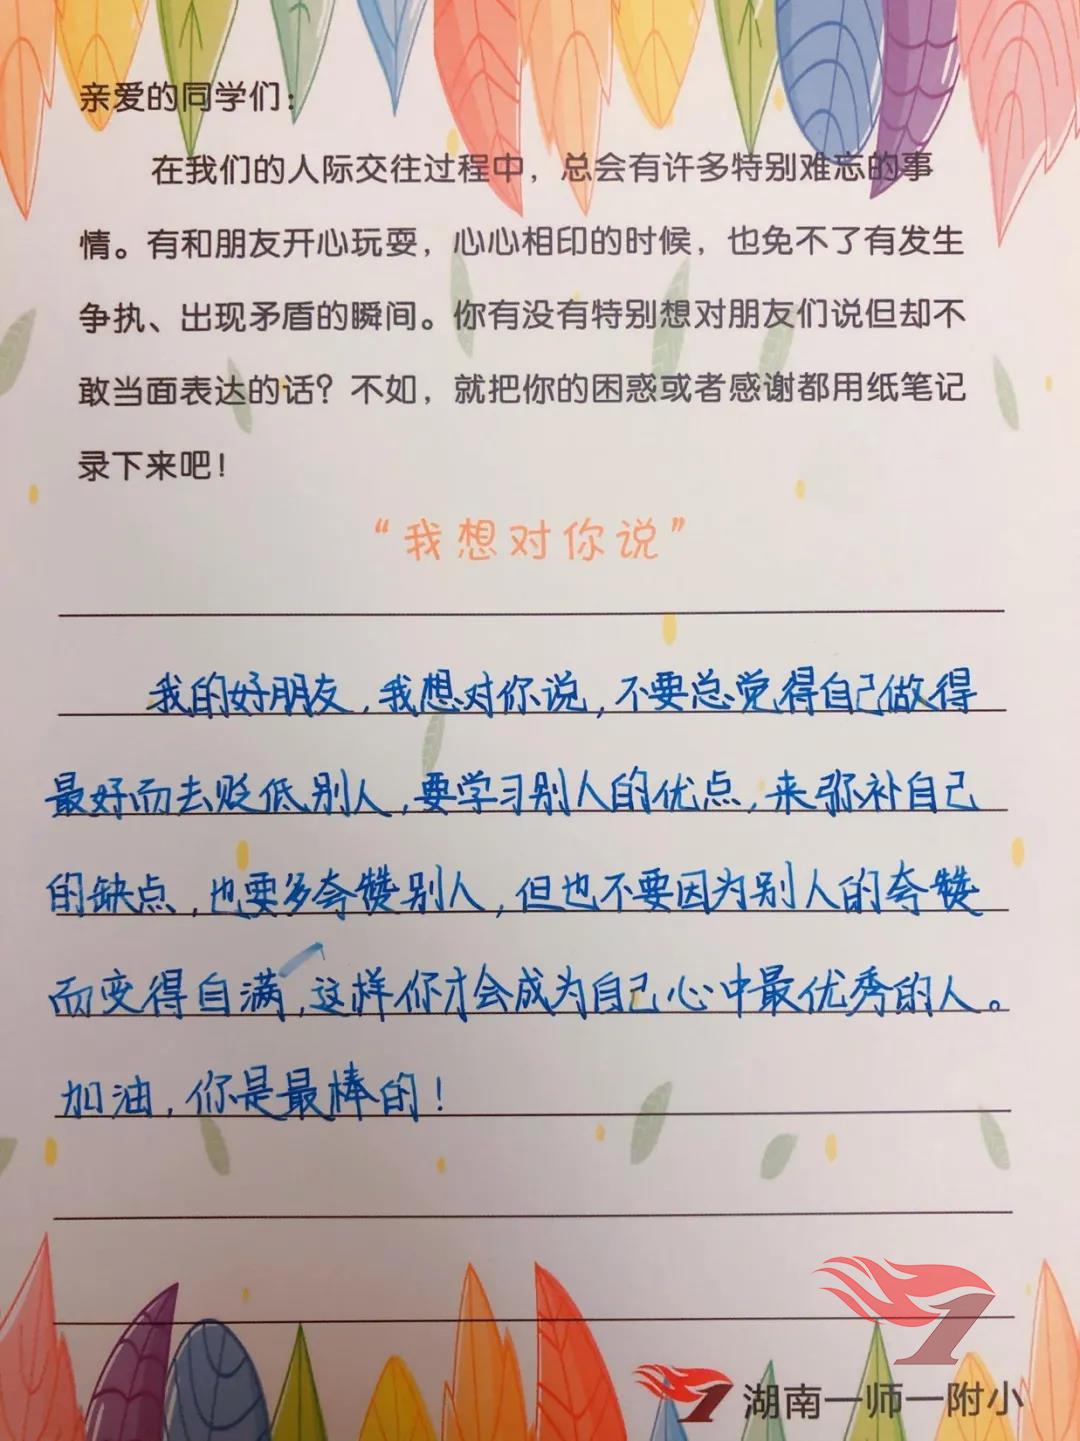 亲爱的同学们：
在我们的人际交往过程中，总会有许多特别难忘的事
情。有和朋友开心玩耍，心心相印的时候，也免不了有发生
争执、出现矛盾的瞬间。你有没有特别想对朋友们说但却不
敢当面表达的话？不如，就把你的困惑或者感谢都用纸笔记
录下来吧！
“我想对你说”
我的好朋友，我想对你说，不要总觉得自己做得
最好而去贬低别人，要学习别人的优点，来弥补自己
的缺点，也要多夸赞别人，但也不要因为别人的夸赞
而变得自满，这样你才会成为自己心中最优秀的人。
加油，你是最棒的！
湖南一师一附小